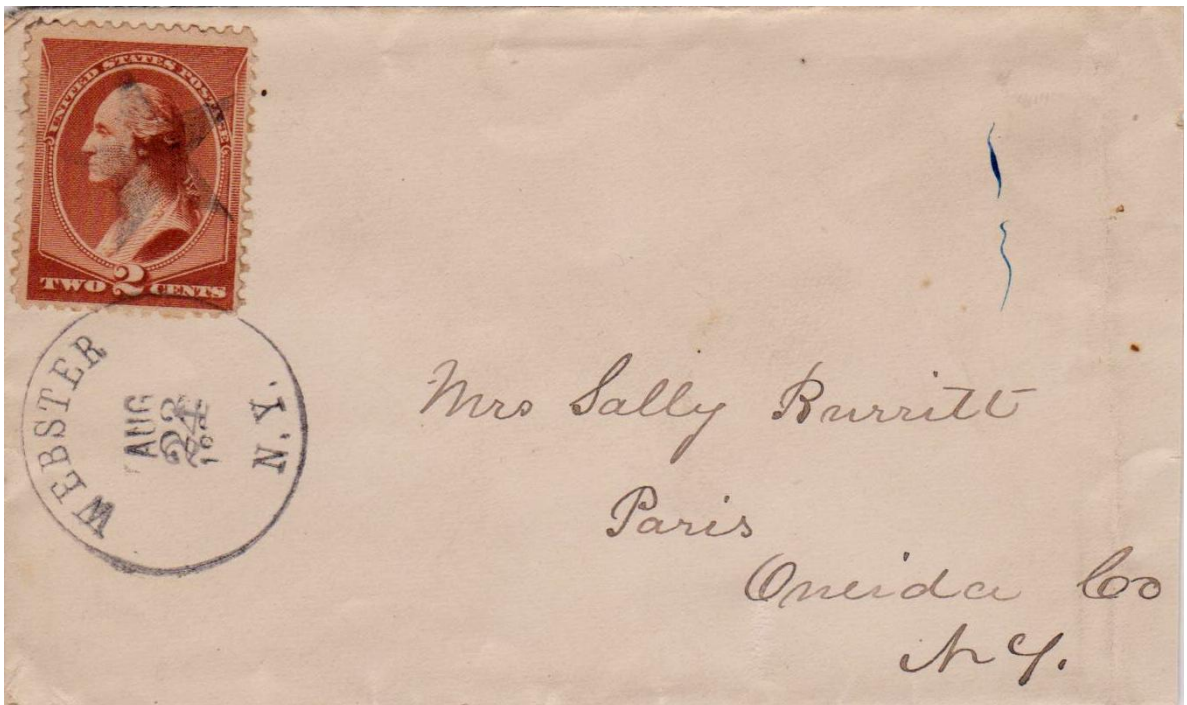 UNITED STATES POSTAGE
TWO 2 CENTS
WEBSTER
N.Y.
AUG
Mrs Sally Burritt
Paris
Oneida Co
N Y.